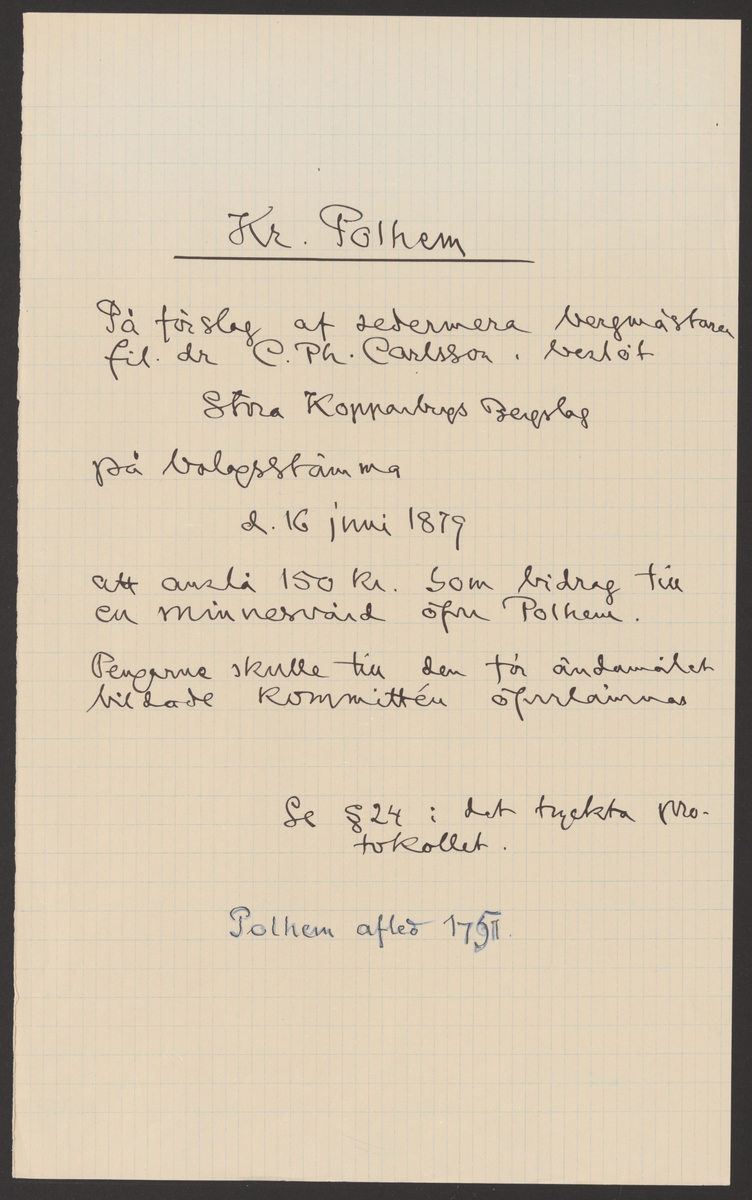 Kr. Polhem
På förslag af sedermera bergmästaren
fil. dr C. Ph. Carlsson. beslöt
Stora Kopparbergs Bergslag
på bolagsstämma
d. 16 juni 1879
att anslå 150 kr. som bidrag till
en minnesvård öfver Polhem.
Pengarna skulle till den för ändamålet
bildade kommittén öfverlämnas
Se § 24 i det tryckta pro-
tokollet.
Polhem afled